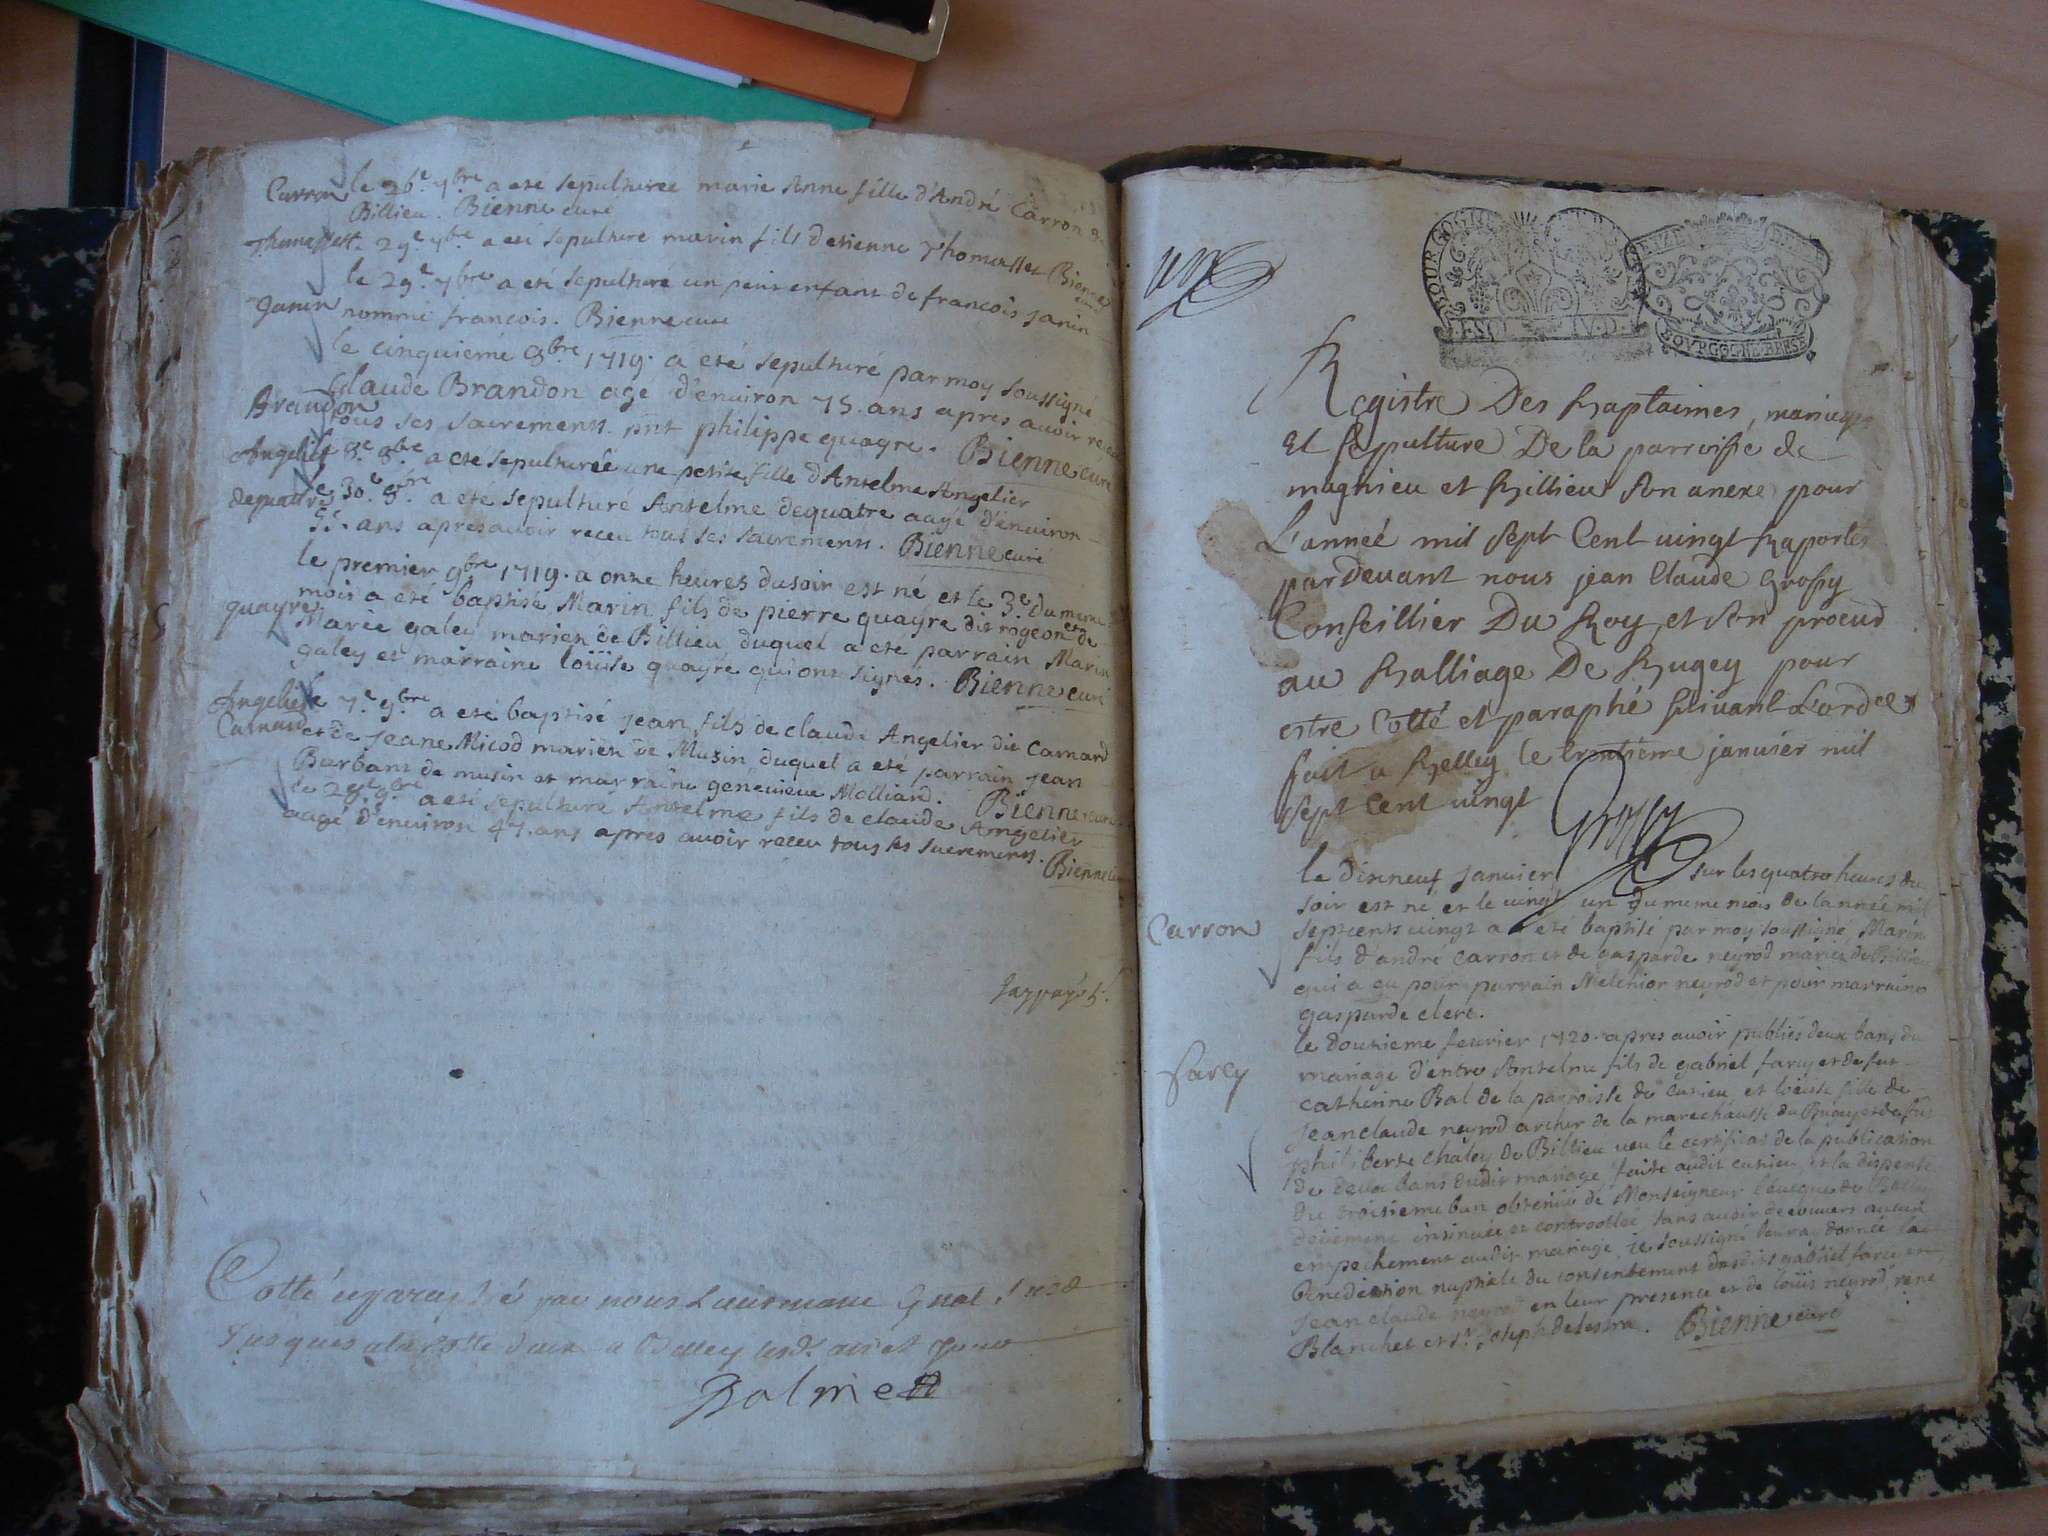 Carron le 26e 7bre a eté sepulturée marie Anne fille d'André Carron de
Billieu. Bienne curé
Thomasset le 29e 7bre a eté sepulturé marin fils d'etienne Thomasset Bienne curé
le 29e 7bre a eté sepulturé un petit enfant de francois janin
Janin nommé francois. Bienne curé
le cinquieme 8bre 1719. a eté sepulturé par moy soussigné
Brandon Claude Brandon age d'environ 75. ans apres avoir receu
tous ses sacrements. pnt philippe quayre. Bienne curé
Angelier le 8e 8bre a eté sepulturée une petite fille d'Antelme Angelier
dequatre le 30e 8bre a eté sepulturé Antelme dequatre aagé d'environ
55. ans apres avoir receu tous ses sacrements. Bienne curé
le premier 9bre 1719. a onze heures du soir est né et le 3e du meme
mois a eté baptisé Marin fils de pierre quayre dit rogeon et de
quayre Marie galey mariés de Billieu duquel a eté parrain Marin
galey et marraine loüise quayre qui ont signés. Bienne curé
Angelier le 7e 9bre a eté baptisé jean fils de claude Angelier dit Camard
Camard et de jeane Micod mariés de Musin duquel a eté parrain jean
Burbant de musin et marraine genevieve Molliard. Bienne curé
le 29e 9bre a eté sepulturé Antelme fils de claude Angelier
aagé d'environ 47. ans apres avoir receu tous ses sacrements.
Bienne curé
Cotté et paraphé par nous Lieutenant
jusques a la cotte a Belley
Balme
BOURGOGNE
BOVRGOGNE BRESSE
Registre Des Baptaimes, mariages
et sepulture De la parroisse de
magnieu et Billieu son anexe pour
L'année mil sept Cent vingt Raporter
pardevant nous jean Claude Grossy
Conseillier Du Roy et son procud
au Balliage De Bugey pour
estre Cotté et paraphé suivant L'ordce
fait a Belley le trentieme janvier mil
sept Cent vingt Grossy
le dixneuf janvier sur les quatre heures du
soir est né et le vingt un du meme mois de l'année mil
Carron septcents vingt a eté baptisé par moy soussigné, Marin
fils d'andré carron et de gasparde neyrod mariez de Billieu
qui a eu pour parrain Melchior neyrod et pour marraine
gasparde clerc.
le douzieme fevrier 1720. apres avoir publiés deux bans du
Farcy mariage d'entre Antelme fils de gabriel farcy et de fut
catherine Bal de la parroisse de Cuzieu, et loüise fille de
jean claude neyrod archer de la marechaussé du Bugey et de fut
philiberte chaley de Billieu veu le certificat de la publication
de deux bans dudit mariage faite audit cuzieu, et la dispense
du troisieme ban obtenüe de Monseigneur l'eveque de Belley
düement insinuée et controollée sans avoir decouvers aucun
empechement audit mariage, je soussigné leur ay donnée la
Benediction nuptiale du consentement desdits gabriel farcy et
jean claude neyrod en leur presence et de loüis neyrod, rene
Blanchet et sr joseph delestra. Bienne curé